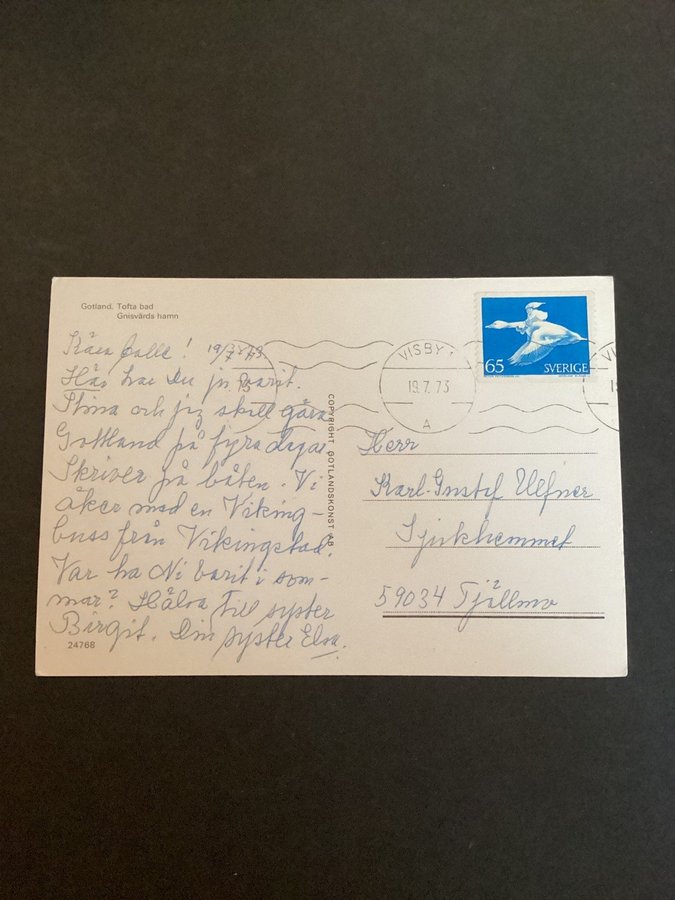 Gotland, Tofta bad
Gnisvärds hamn
Kära Calle! 19/7 73
Här har Du ju varit.
Stina och jag skall göra
Gottland på fyra dagar
Skriver på båten. Vi
åker med en Viking-
buss från Vikingstad.
Var ha Ni varit i som-
mar? Hälsa till syster
Birgit. Din syster Elsa.
24768
COPYRIGHT GOTLANDSKONST AB
65 SVERIGE
VISBY 1
19.7.73
A
Herr
Karl-Gustaf
Sjukhemmet
59034 Tjällmo